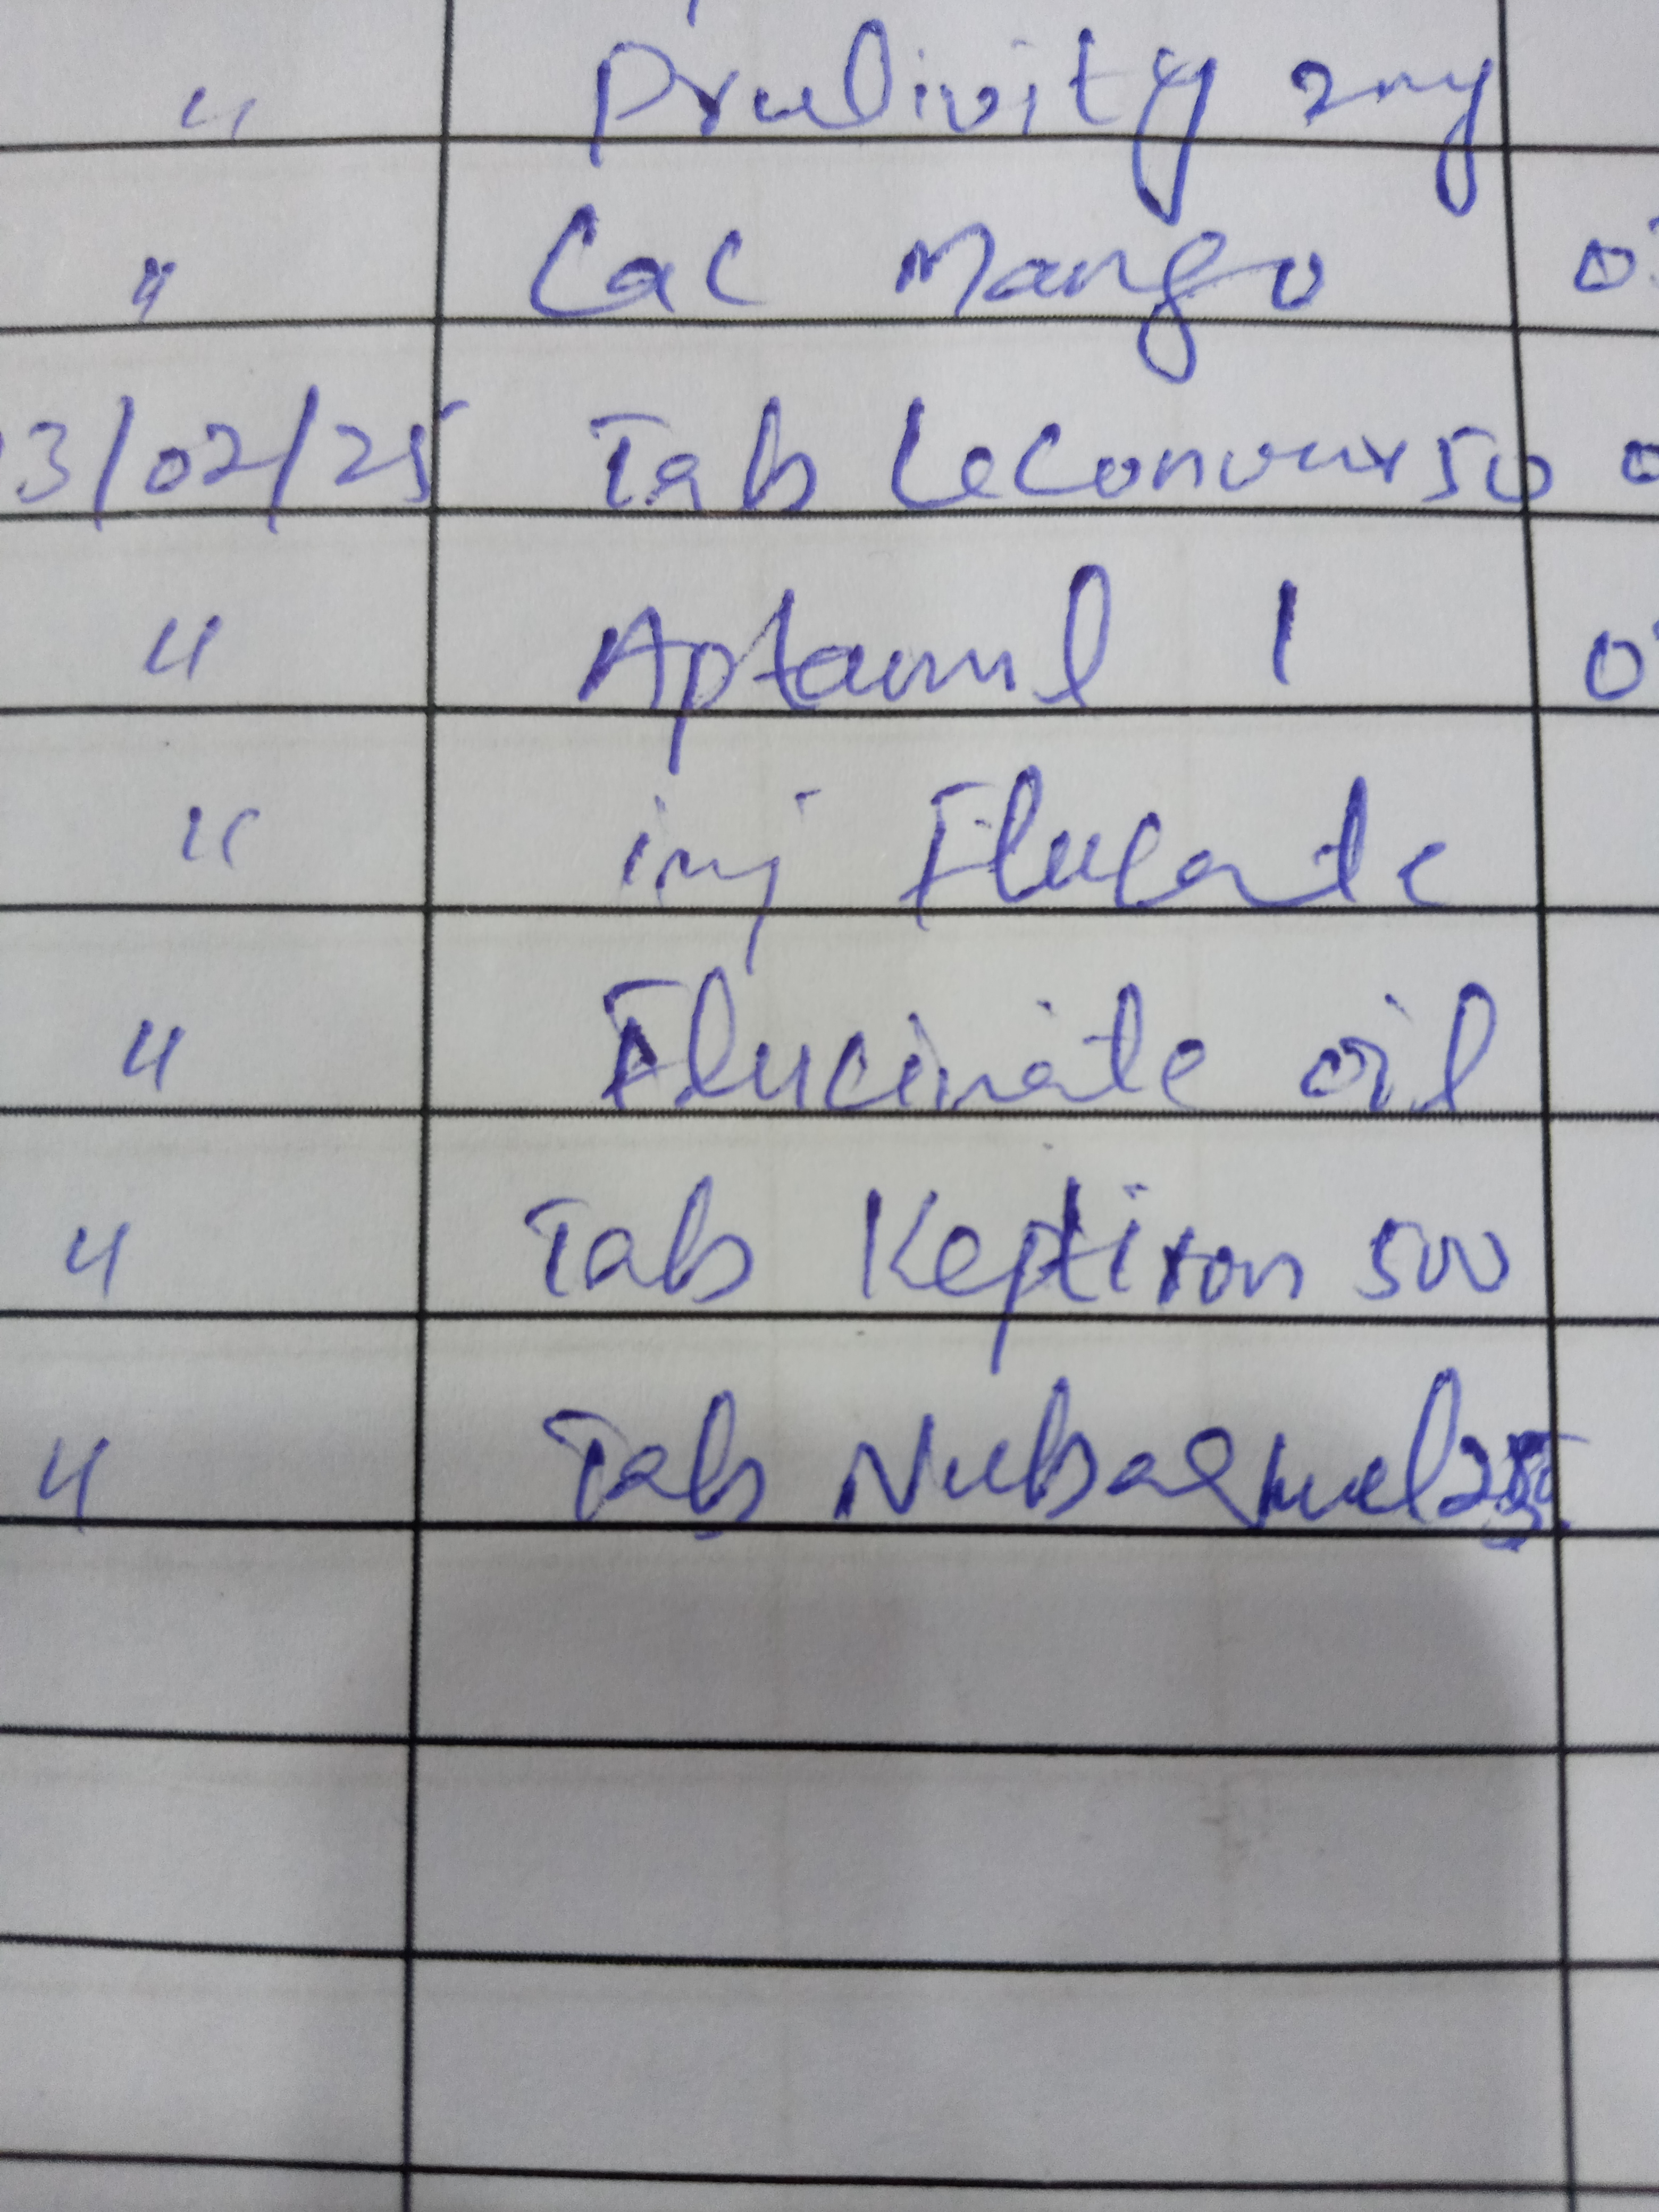 " Prulivity 2mg
" Cac Mango 0
3/02/25 Tab Leconvux 50 0
" Aptamil 1 0
" inj Flucate
" Flucinate oil
" Tab Keptiron 500
" Tab